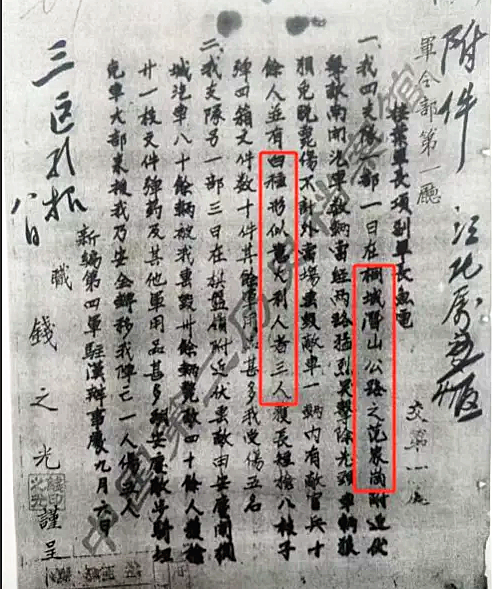 附件
江北底五版
軍令部第一廳
交第一處
接葉軍長項副軍長魚電
一、我四支隊一部一日在桐城潛山公路之范家崗附近伏
擊敵南開汽車數輛當經兩路猛烈突擊除先頭車輛狼
狽免脫斃傷不計外當場焚毀敵車一輛內有敵官兵十
餘人並有白種形似意大利人者三人獲長短槍八枝子
彈四箱文件數十件其餘軍用品甚多我受傷五名
二、我支隊另一部三日在棋盤嶺附近伏擊敵由安慶開桐
城汽車八十餘輛被我焚毀卅餘輛斃敵四十餘人獲槍
廿一枝文件彈药及其他軍用品甚多
兔車大部來援我乃安全轉移我陣亡一人傷五人
新編第四軍駐漢辦事處九月六日
職錢之光謹呈
三區
八日
中國第二歷史檔案館